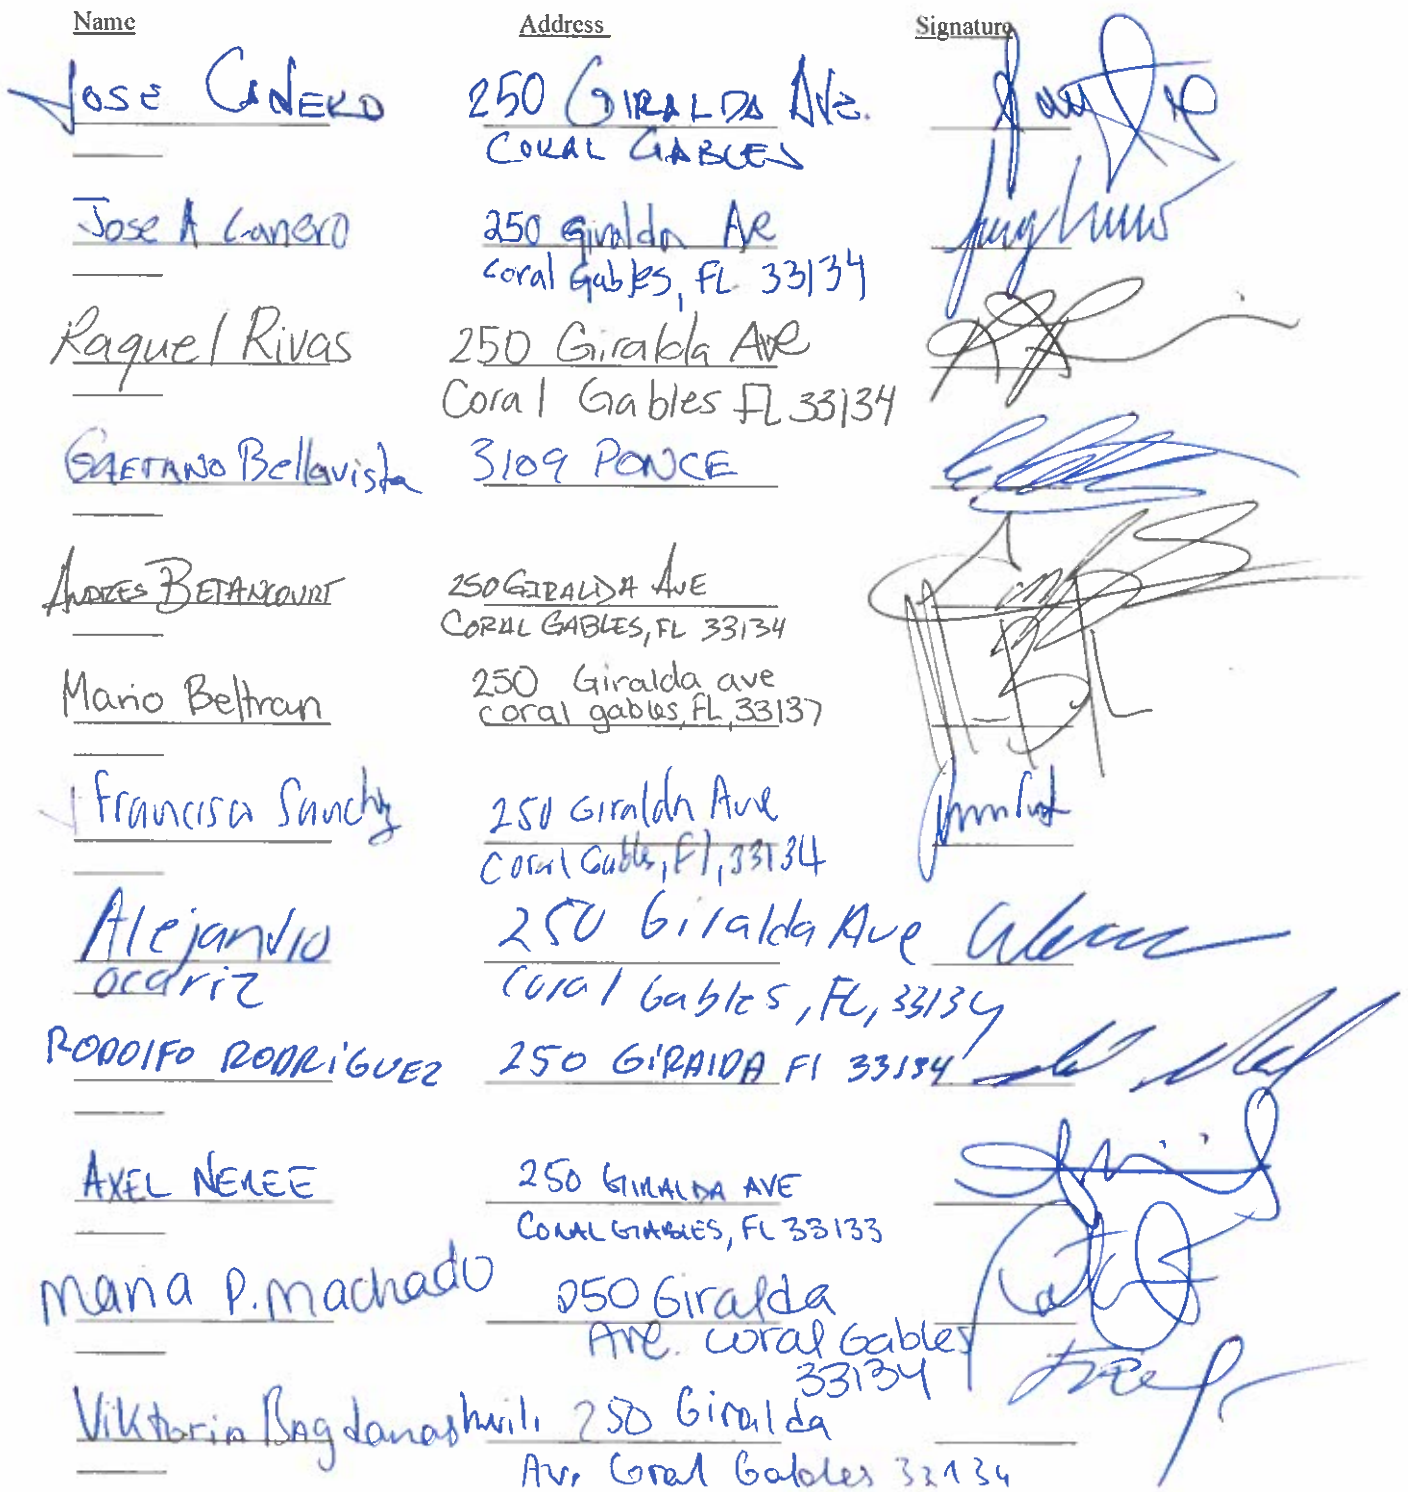 Name Address Signature
JOSE CANERO 250 GIRALDA AVE.
CORAL GABLES
Jose A Canero 250 Giralda Ave
Coral Gables, FL 33134
Raquel Rivas 250 Giralda Ave
Coral Gables FL 33134
GAETANO Bellavista 3109 PONCE
ANDRES BETANCOURT 250 GIRALDA AVE
CORAL GABLES, FL 33134
Mario Beltran 250 Giralda ave
coral gables, FL, 33137
Francisca Sanchz 250 Giralda Ave
Coral Gables, Fl, 33134
Alejandro 250 Giralda Ave
ocariz Coral Gables, FL, 33134
RODOlFO RODRiGUEZ 250 GiRAlDA Fl 33134
AXEL NEREE 250 GIRALDA AVE
CORAL GABLES, FL 33133
Maria P. Machado 250 Giralda
Ave. Coral Gables
33134
Viktoria Bagdanashvili 250 Giralda
Av. Coral Gables 33134